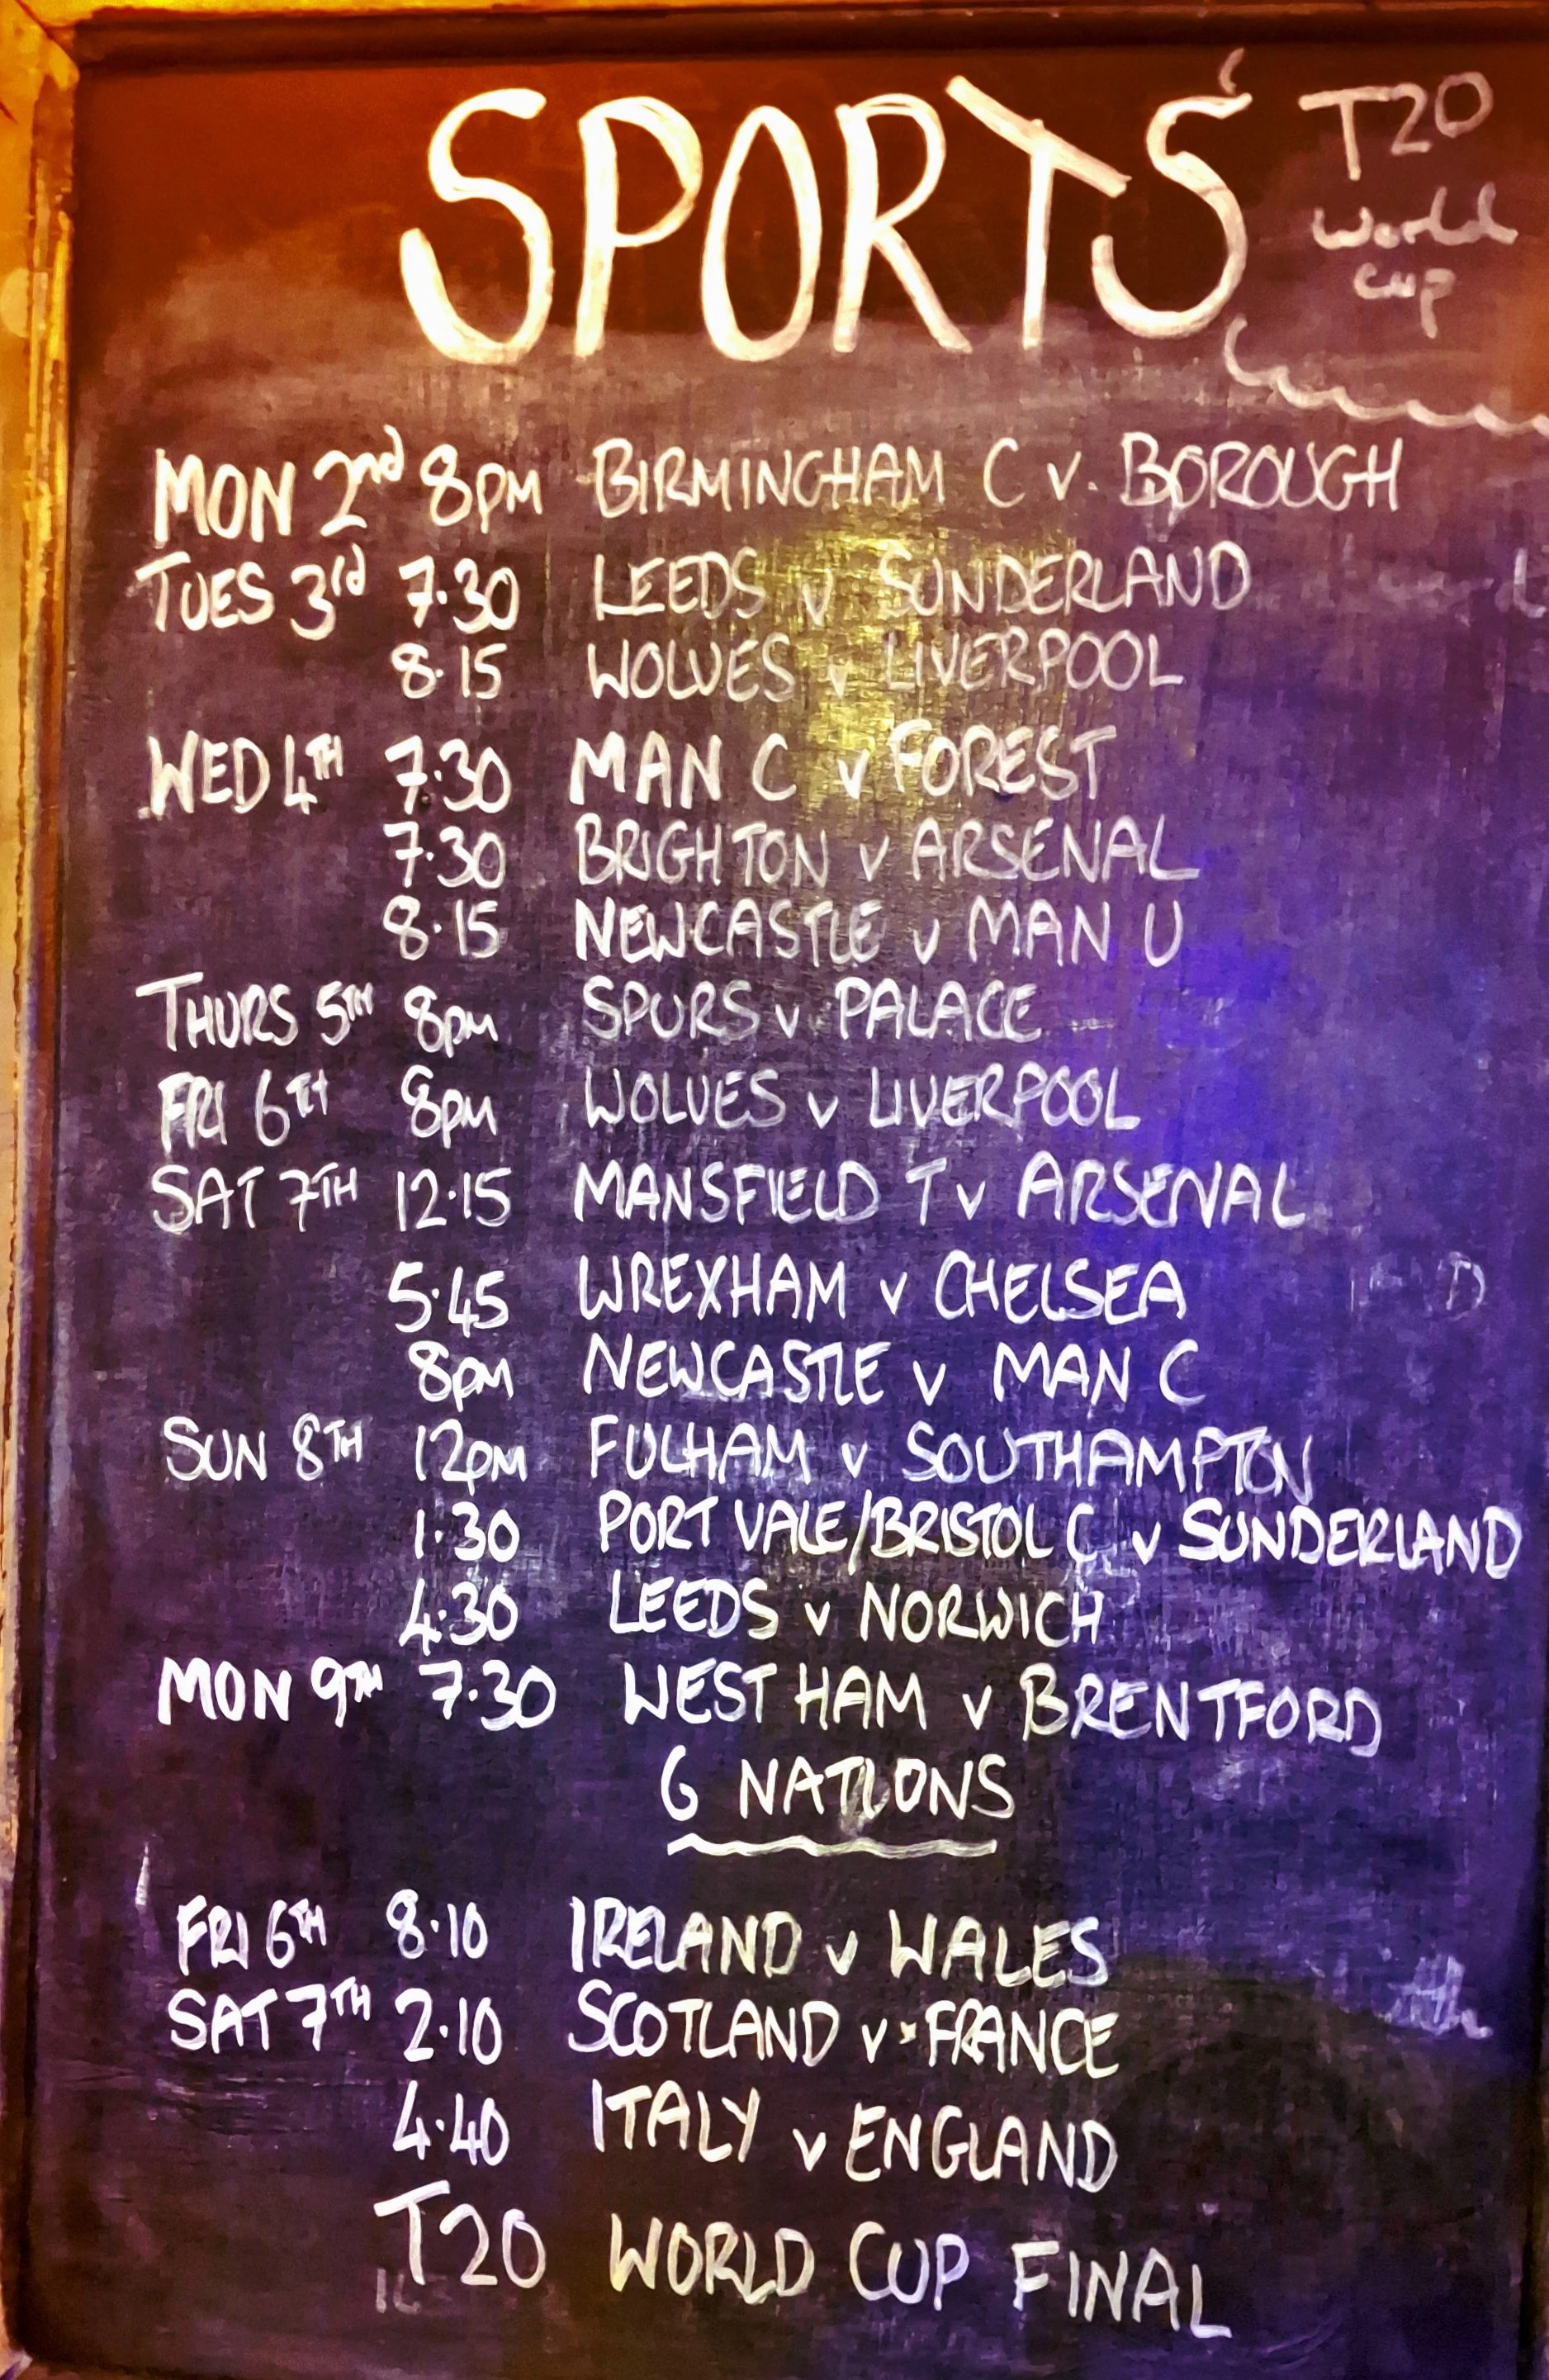 SPORTS
T20
World
Cup
MON 2nd 8PM BIRMINGHAM C v. BOROUGH
TUES 3rd 7.30 LEEDS v SUNDERLAND
8.15 WOLVES v LIVERPOOL
WED 4TH 7.30 MAN C v FOREST
7.30 BRIGHTON v ARSENAL
8.15 NEWCASTLE v MAN U
THURS 5TH 8PM SPURS v PALACE
FRI 6TH 8PM WOLVES v LIVERPOOL
SAT 7TH 12.15 MANSFIELD T v ARSENAL
5.45 WREXHAM v CHELSEA
8PM NEWCASTLE v MAN C
SUN 8TH 12PM FULHAM v SOUTHAMPTON
1.30 PORT VALE/BRISTOL C v SUNDERLAND
4.30 LEEDS v NORWICH
MON 9TH 7.30 WEST HAM v BRENTFORD
6 NATIONS
FRI 6TH 8.10 IRELAND v WALES
SAT 7TH 2.10 SCOTLAND v FRANCE
4.40 ITALY v ENGLAND
T20 WORLD CUP FINAL